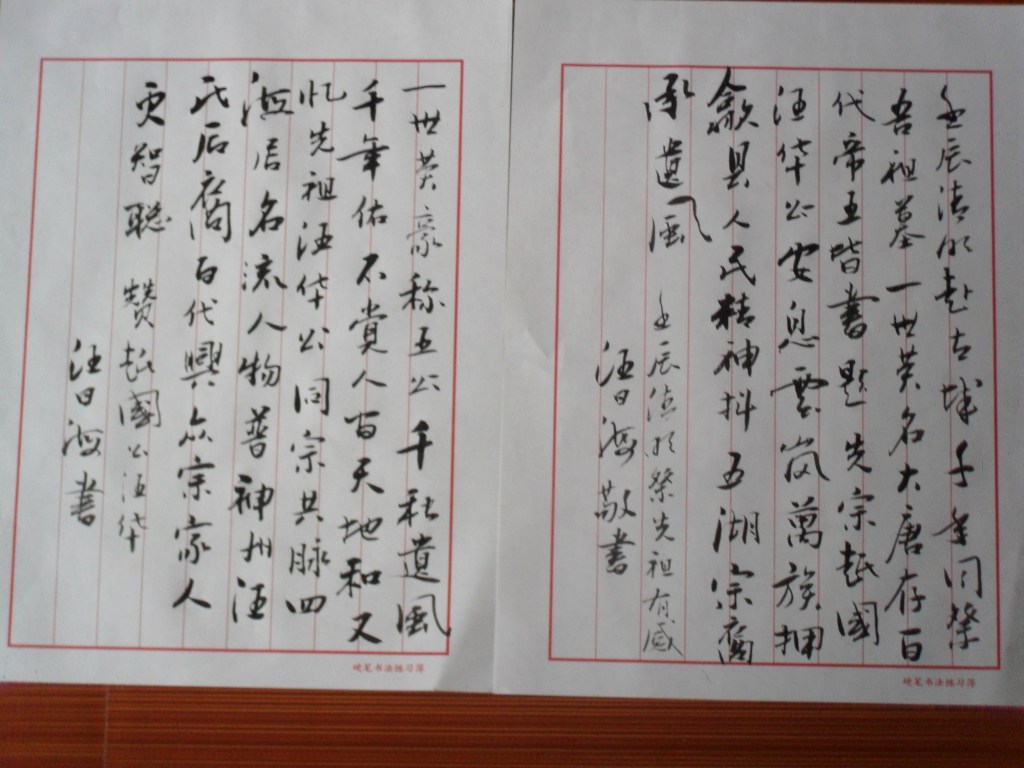 壬辰清明赴古城千年同祭
吾祖墓一世英名大唐存百
代帝王皆書题先宗越國
汪华公安息雲岚萬族拥
歙县人民精神抖五湖宗裔
承遗风 壬辰清明祭先祖有感
汪日海敬書
硬笔书法练习簿
一世英豪称王公千秋遗风
千年佑不赏人百天地和又
忆先祖汪华公同宗共脉四
海居名流人物普神州汪
氏后裔百代興众宗家人
更智聪 赞越國公汪华
汪日海書
硬笔书法练习簿